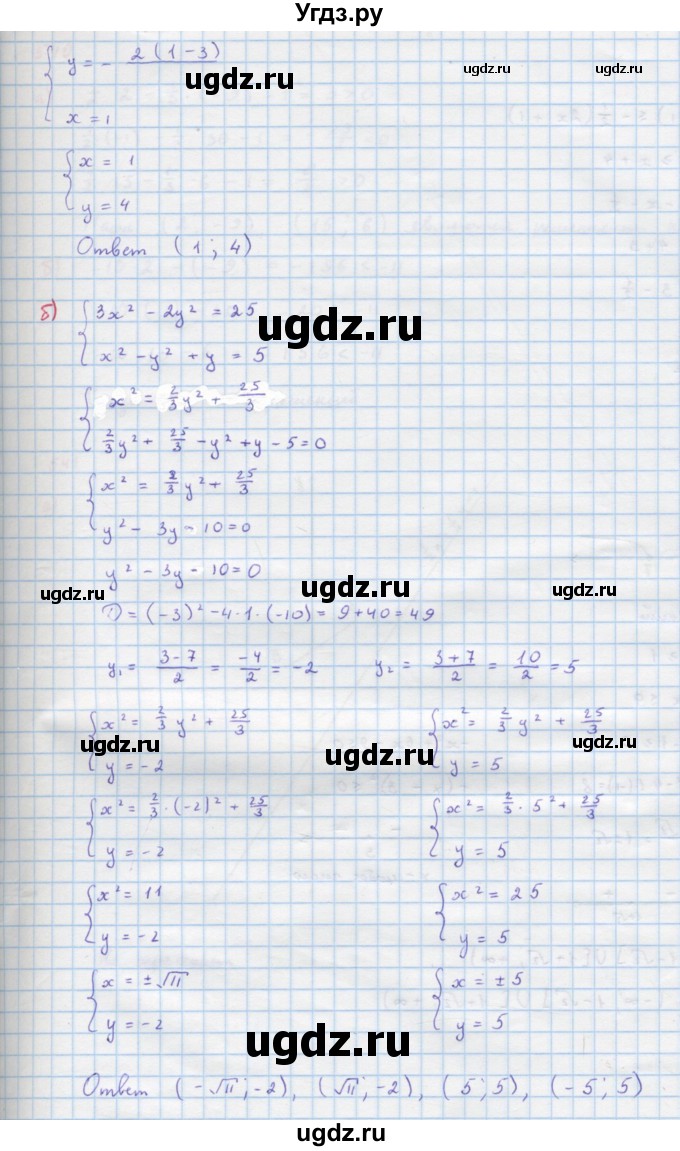 Угдз.ру
y = - 2(1-3)
ugdz.ru ugdz.ru ugdz.ru
x = 1
x = 1
y = 4
Ответ (1; 4)
б) 3x² - 2y² = 25
ugdz.ru
x² - y² + y = 5
x² = 2/3 y² + 25/3
2/3 y² + 25/3 - y² + y - 5 = 0
x² = 2/3 y² + 25/3
y² - 3y - 10 = 0
y² - 3y - 10 = 0
ugdz.ru ugdz.ru ugdz.ru
D = (-3)² - 4·1·(-10) = 9 + 40 = 49
y₁ = (3-7)/2 = -4/2 = -2 y₂ = (3+7)/2 = 10/2 = 5
x² = 2/3 y² + 25/3 x² = 2/3 y² + 25/3
ugdz.ru ugdz.ru ugdz.ru
y = -2 y = 5
x² = 2/3 · (-2)² + 25/3 x² = 2/3 · 5² + 25/3
y = -2 y = 5
x² = 11 x² = 25
y = -2 y = 5
x = ±√11 x = ±5
y = -2 y = 5
ugdz.ru
Ответ (-√11; -2), (√11; -2), (5; 5), (-5; 5)
ugdz.ru